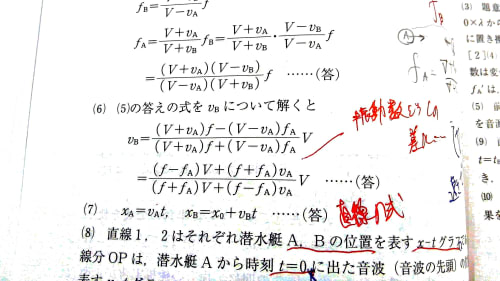 f_B = V-v_B / V-v_A f
f_A = V+v_A / V+v_B f_B = V+v_A / V+v_B · V-v_B / V-v_A f
= (V+v_A)(V-v_B) / (V+v_B)(V-v_A) f ……(答)
(6) (5)の答えの式を v_B について解くと
v_B = (V+v_A)f-(V-v_A)f_A / (V+v_A)f+(V-v_A)f_A V
= (f-f_A)V+(f+f_A)v_A / (f+f_A)V+(f-f_A)v_A V ……(答)
(7) x_A=v_At, x_B=x_0+v_Bt ……(答)
直線の式
(8) 直線1, 2はそれぞれ潜水艇 A, B の位置を表す x-t グラ
線分OPは, 潜水艇 A から時刻 t=0 に出た音波 (音波の先頭) の
振動数
(3) 題意
0×λから
に置き
[2](4)
数は変
f_A'は,
(5) 前
を音源
(9)
t=t_B
き,
(10)
果を
f_B
A
f_A=